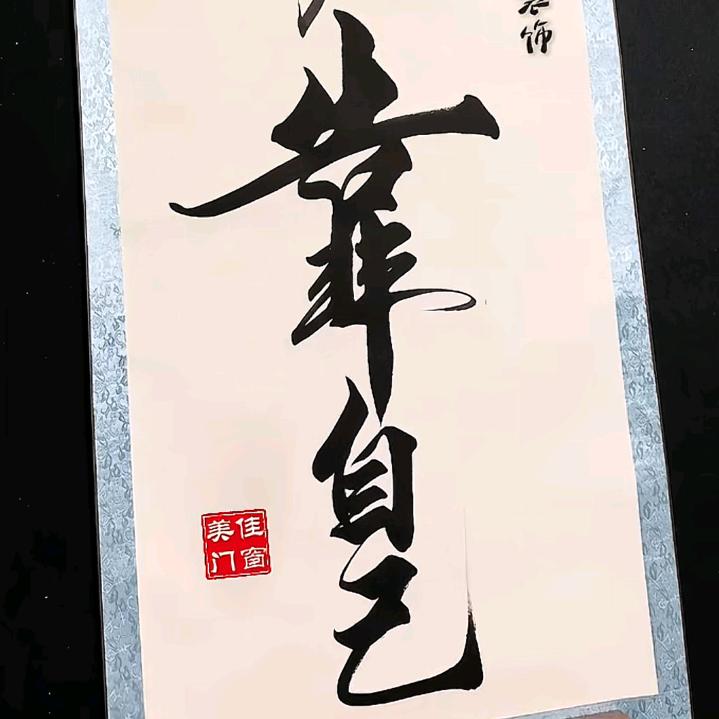 饰
靠自己
美佳
门窗